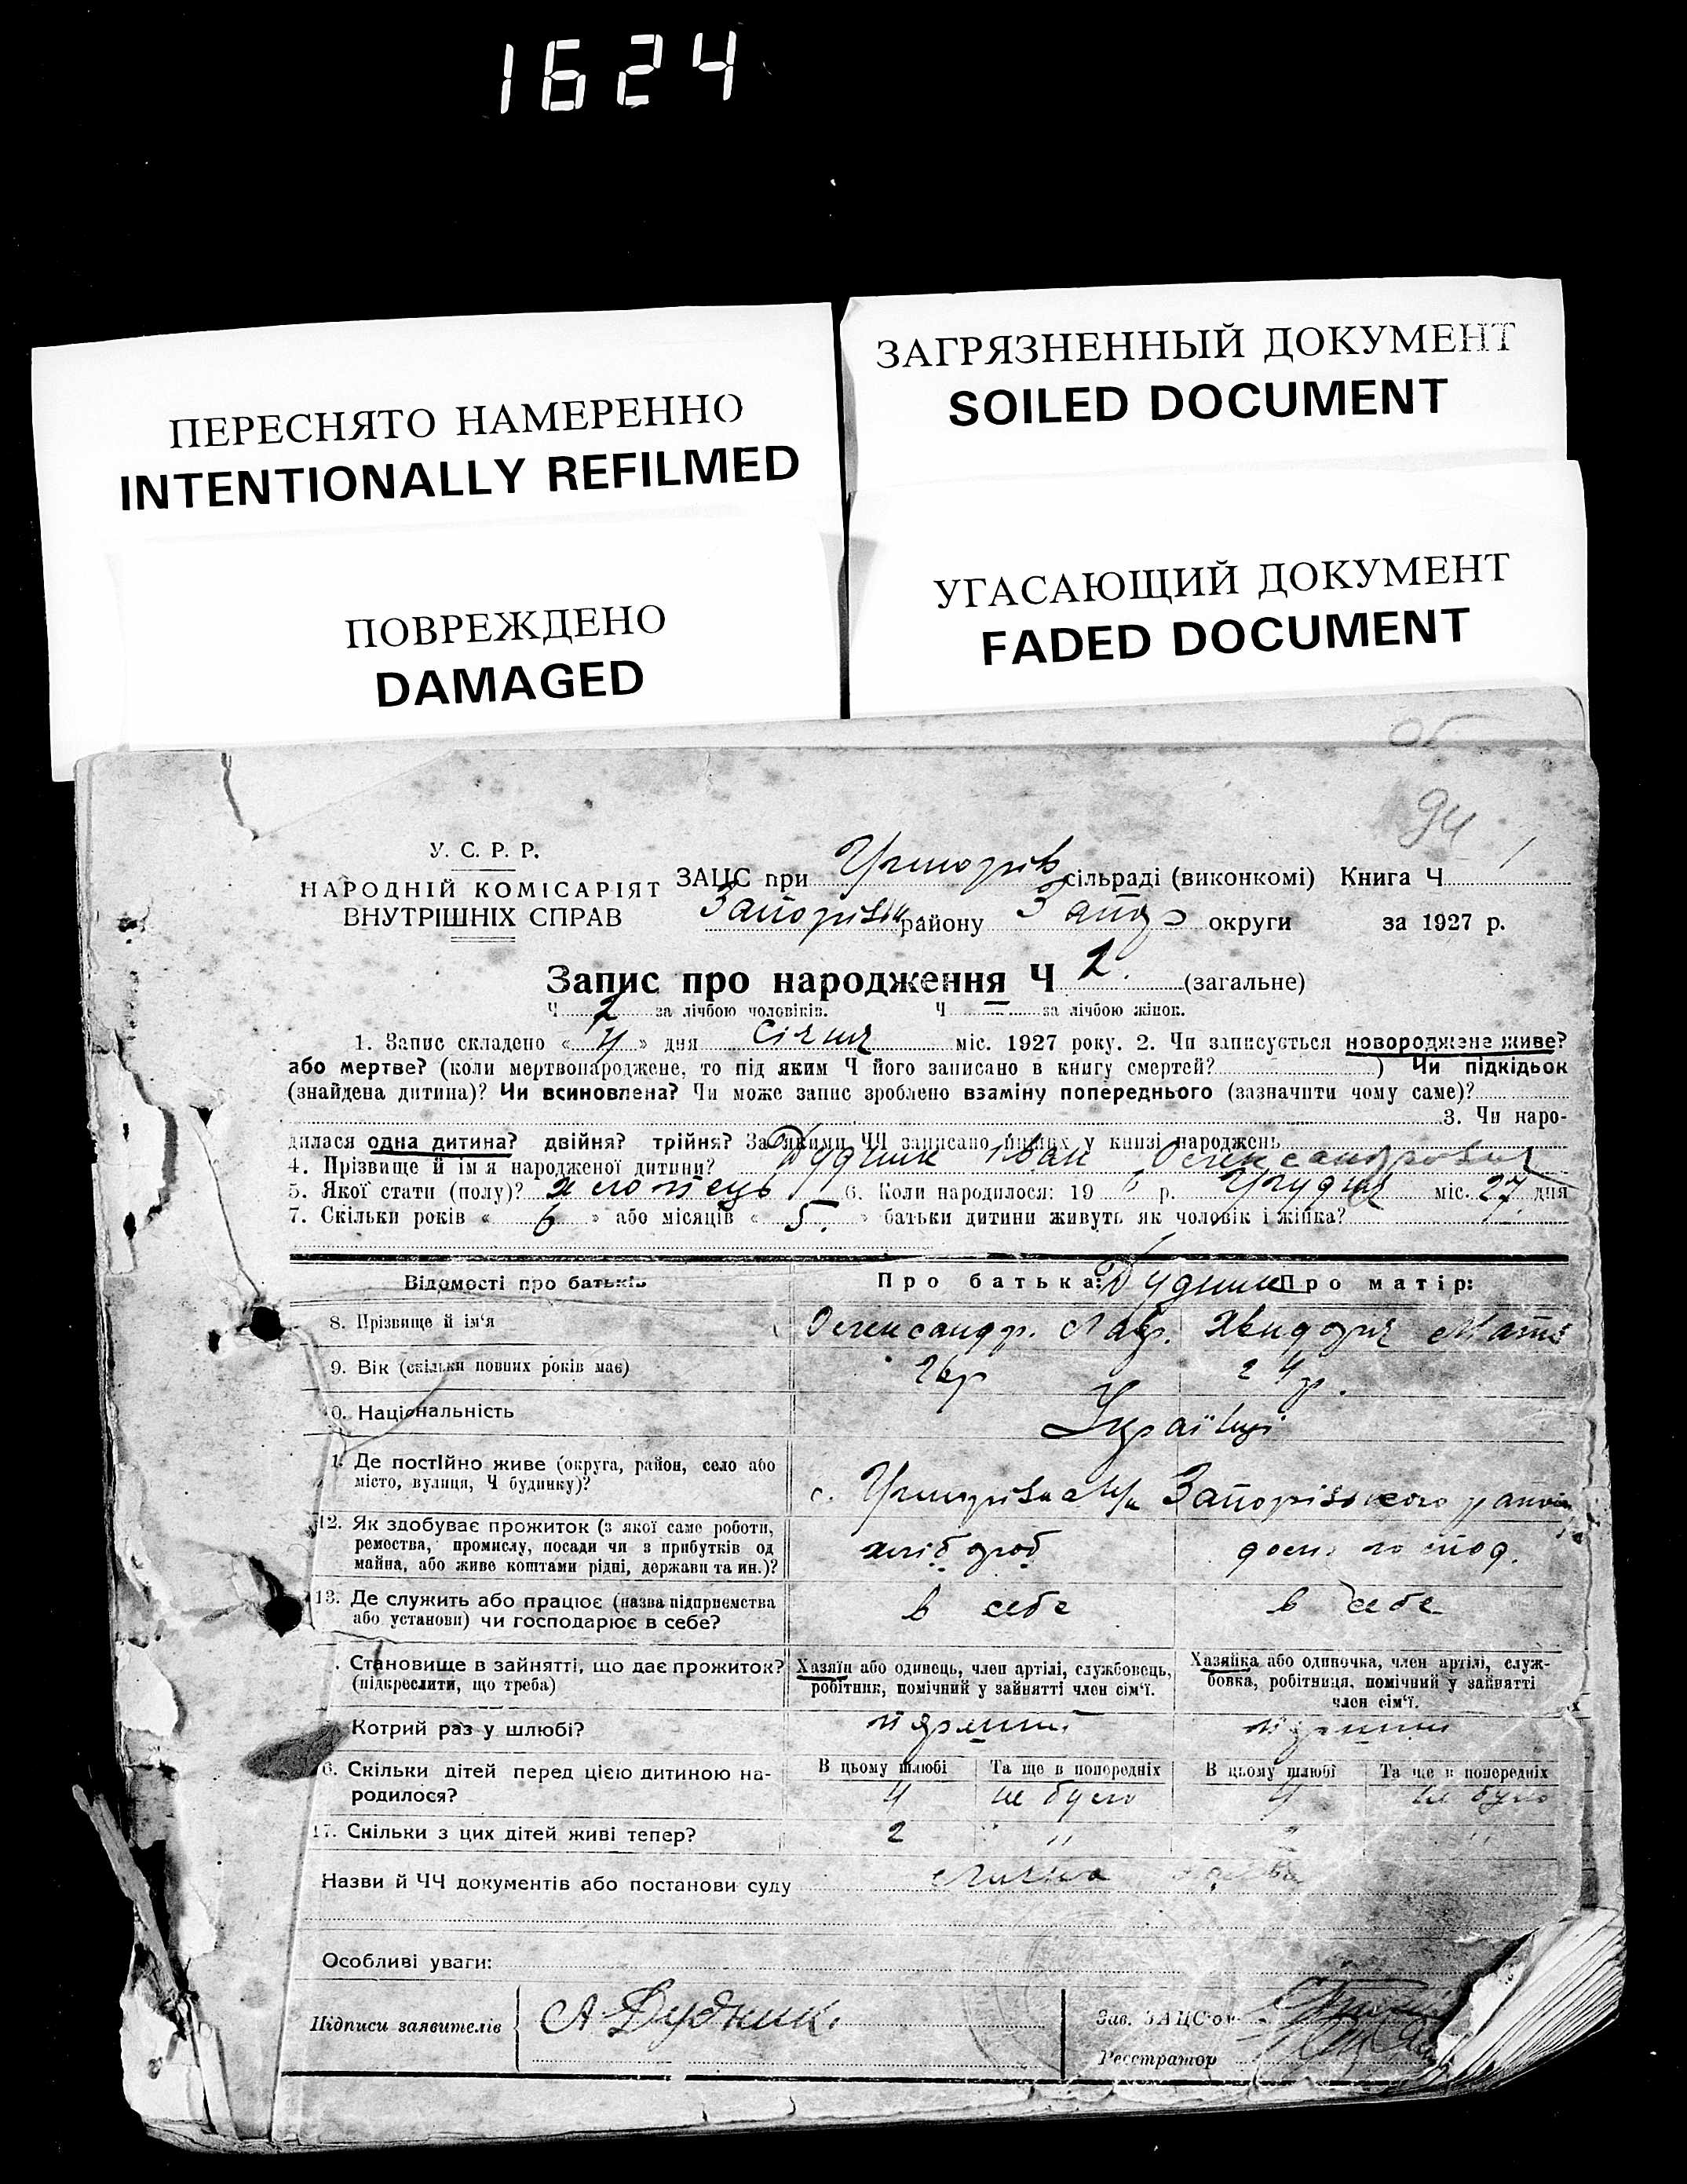 1624
ПЕРЕСНЯТО НАМЕРЕННО
INTENTIONALLY REFILMED
ЗАГРЯЗНЕННЫЙ ДОКУМЕНТ
SOILED DOCUMENT
ПОВРЕЖДЕНО
DAMAGED
УГАСАЮЩИЙ ДОКУМЕНТ
FADED DOCUMENT
94
У. С. Р. Р.
НАРОДНІЙ КОМІСАРІЯТ
ВНУТРІШНІХ СПРАВ
ЗАЦС при сільраді (виконкомі) Книга Ч
району округи за 1927 р.
Запис про народження Ч 2. (загальне)
Ч 2 за лічбою чоловіків. Ч за лічбою жінок.
1. Запис складено « 4 » дня Січня міс. 1927 року. 2. Чи записується новороджене живе?
або мертве? (коли мертвонароджене, то під яким Ч його записано в книгу смертей? ) Чи підкідьок
(знайдена дитина)? Чи всиновлена? Чи може запис зроблено взаміну попереднього (зазначити чому саме)?
3. Чи наро-
дилася одна дитина? двійня? трійня? За якими ЧЧ записано инших у книзі народжень
4. Прізвище й ім'я народженої дитини? Дудник Іван Олександрович
5. Якої стати (полу)? хлопець 6. Коли народилося: 19 6 р. Грудня міс. 27 дня
7. Скільки років « 6 » або місяців « 5. » батьки дитини живуть як чоловік і жінка?
Відомості про батьків
Про батька: Дудник Про матір:
8. Прізвище й ім'я Олександр. Лавр.
9. Вік (скільки повних років має) 26р 24р.
0. Національність Українці
1. Де постійно живе (округа, район, село або
місто, вулиця, Ч будинку)? с. Запорізького
12. Як здобуває прожиток (з якої саме роботи,
ремества, промислу, посади чи з прибутків од
майна, або живе коштами рідні, держави та ин.)? хлібороб господ.
13. Де служить або працює (назва підприємства
або установи) чи господарює в себе? в себе в себе
. Становище в зайнятті, що дає прожиток?
(підкреслити, що треба)
Хазяїн або одинець, член артілі, службовець,
робітник, помічний у зайнятті член сім'ї.
Хазяйка або одиночка, член артілі, служ-
бовка, робітниця, помічний у зайнятті
член сім'ї.
Котрий раз у шлюбі?
6. Скільки дітей перед цією дитиною на-
родилося?
В цьому шлюбі Та ще в попередніх В цьому шлюбі Та ще в попередніх
4 не було 4 не було
17. Скільки з цих дітей живі тепер? 2 " 2 "
Назви й ЧЧ документів або постанови суду
Особливі уваги:
Підписи заявителів А Дудник.
Зав. ЗАЦС'ом
Реєстратор